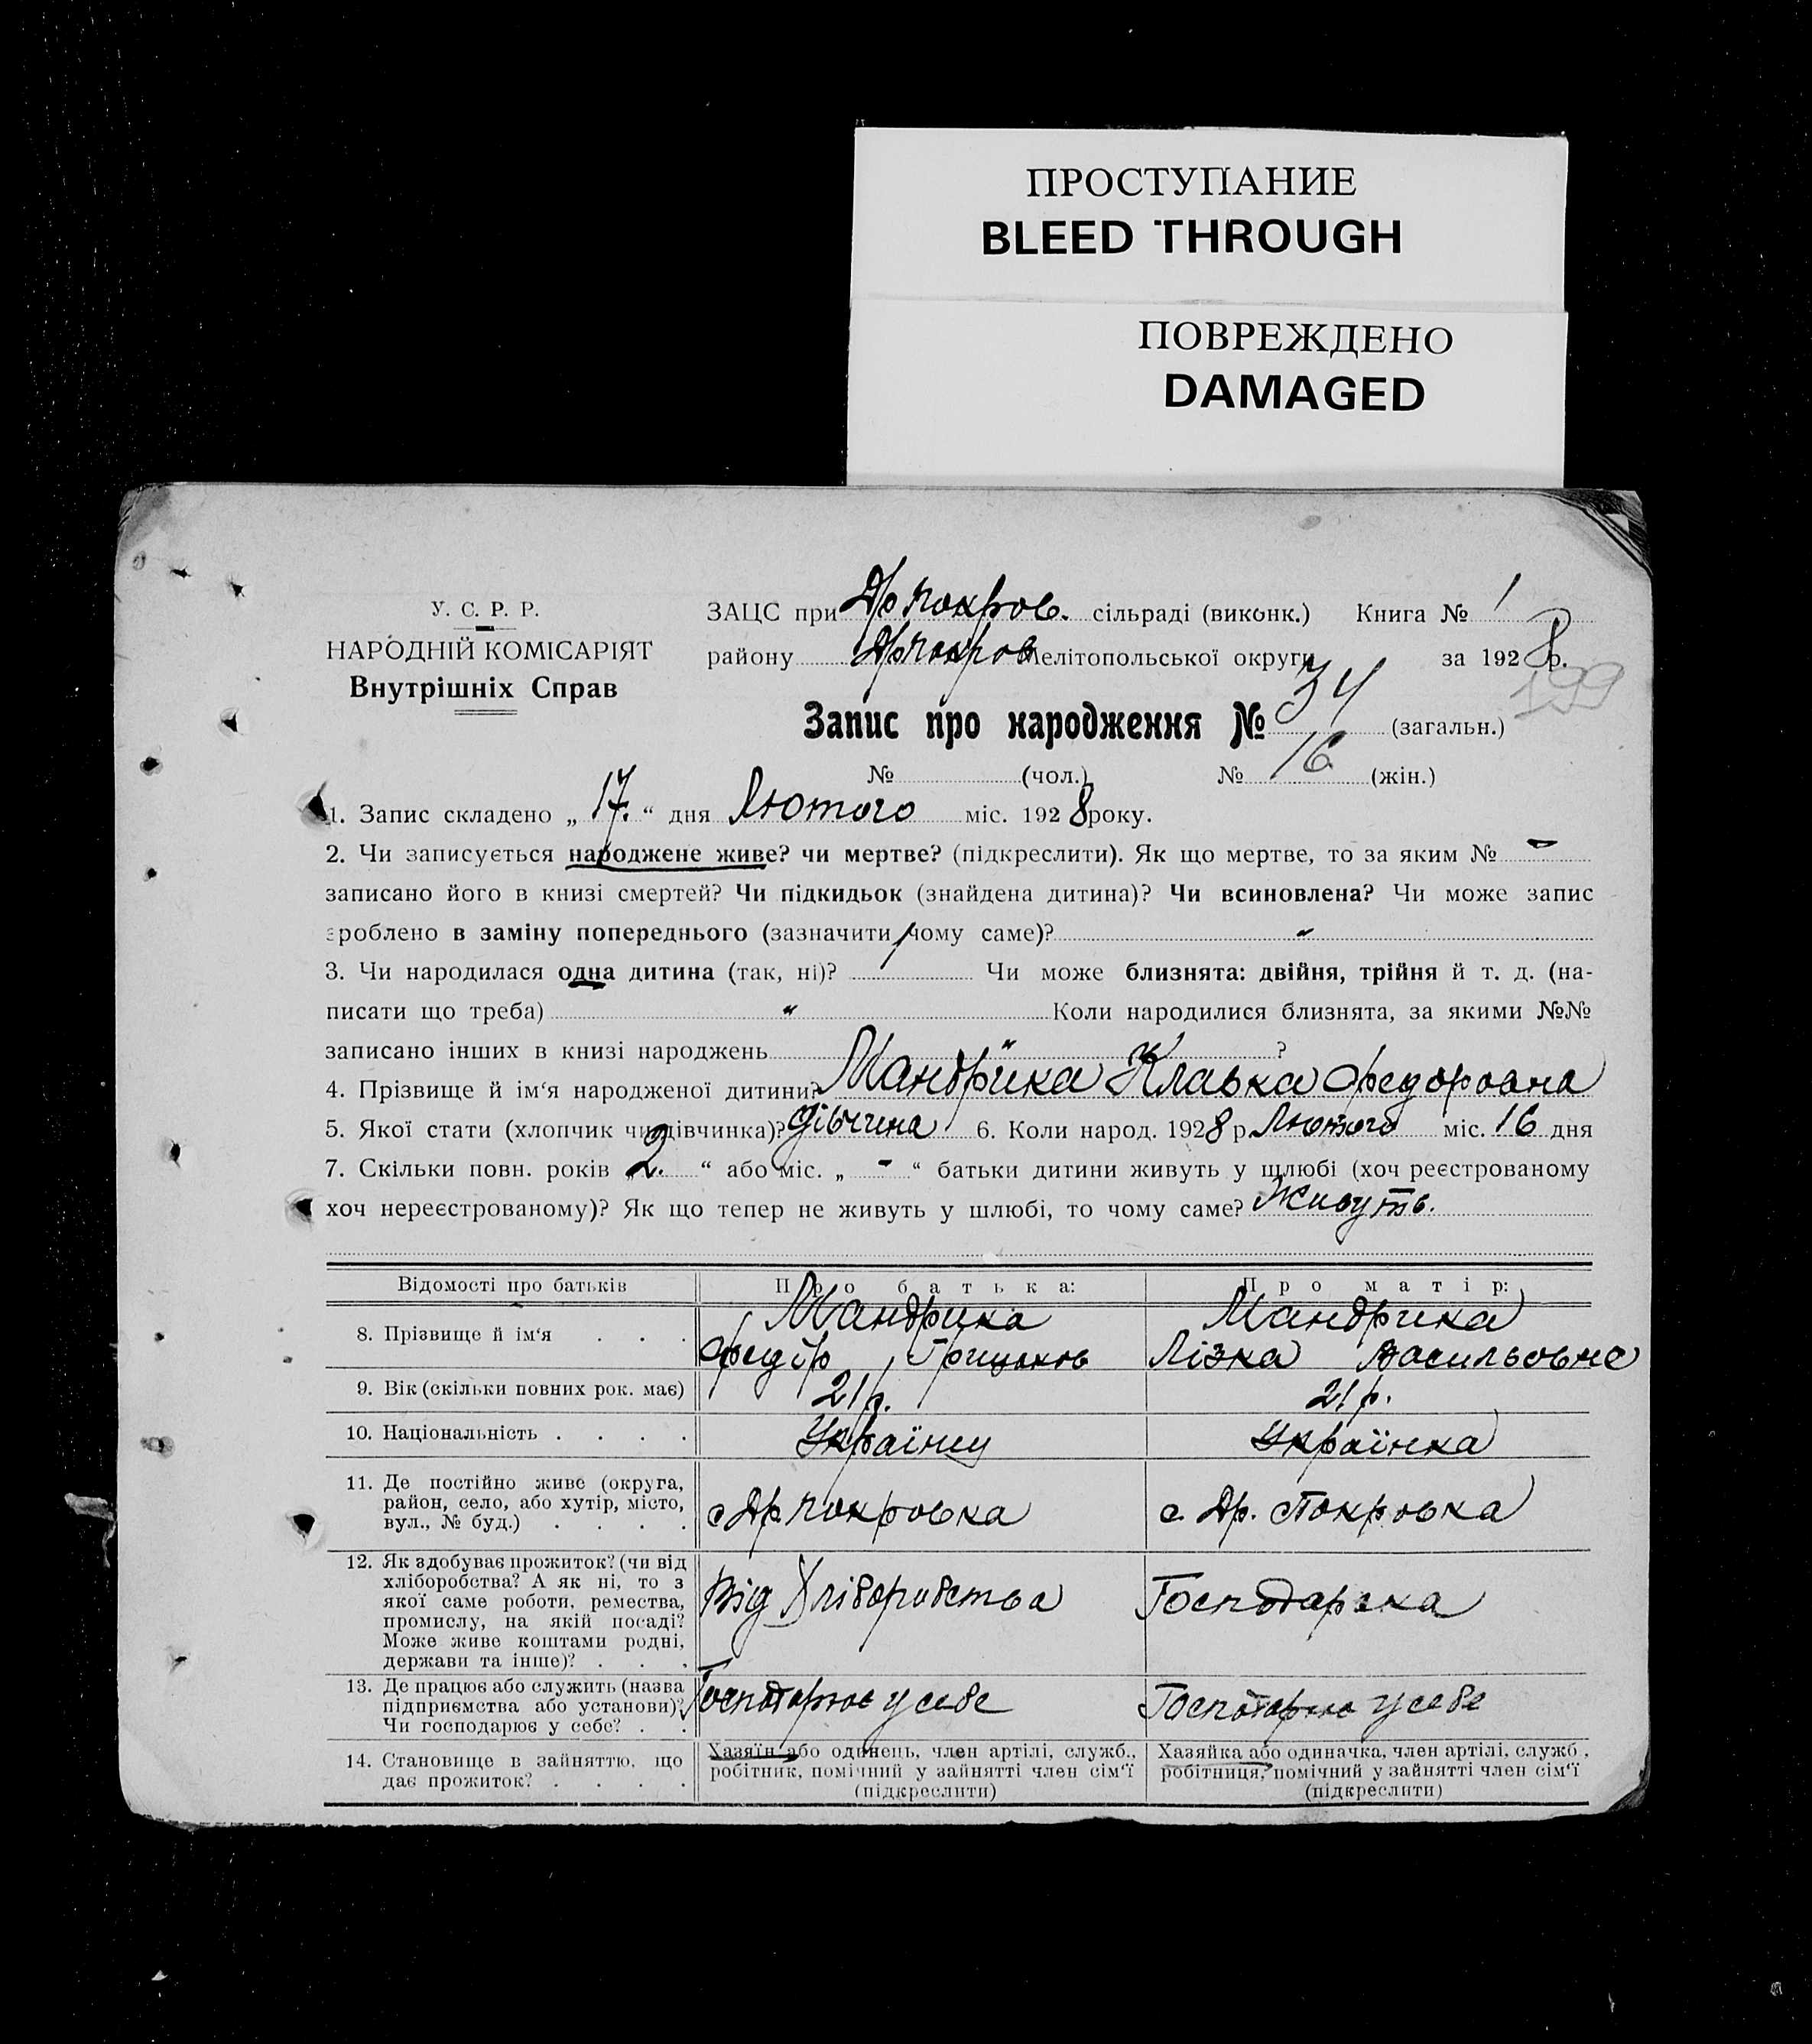 ПРОСТУПАНИЕ
BLEED THROUGH
ПОВРЕЖДЕНО
DAMAGED
У. С. Р. Р.
НАРОДНІЙ КОМІСАРІЯТ
Внутрішніх Справ
ЗАЦС при Др Покров. сільраді (виконк.) Книга № 1
району Др Покров Мелітопольської округи за 1928 р.
199
Запис про народження № 34 (загальн.)
№ (чол.) № 16 (жін.)
1. Запис складено „ 17. “ дня Лютого міс. 1928 року.
2. Чи записується народжене живе? чи мертве? (підкреслити). Як що мертве, то за яким № -
записано його в книзі смертей? Чи підкидьок (знайдена дитина)? Чи всиновлена? Чи може запис
зроблено в заміну попереднього (зазначити чому саме)? "
3. Чи народилася одна дитина (так, ні)? Чи може близнята: двійня, трійня й т. д. (на-
писати що треба) " Коли народилися близнята, за якими №№
записано інших в книзі народжень " ?
4. Прізвище й ім‘я народженої дитини? Мандрика Клавка Федоровна
5. Якої стати (хлопчик чи дівчинка)? дівчина 6. Коли народ. 1928 р. Лютого міс. 16 дня
7. Скільки повн. років „ 2. “ або міс. „ - “ батьки дитини живуть у шлюбі (хоч реєстрованому
хоч нереєстрованому)? Як що тепер не живуть у шлюбі, то чому саме? Живуть.
Відомості про батьків Про батька: Про матір:
8. Прізвище й ім‘я . . . Мандрика Мандрика
Федір Грицьков Лізка Васильовне
9. Вік (скільки повних рок. має) 21 р. 21 р.
10. Національність . . . . Українец Українка
11. Де постійно живе (округа, район, село, або хутір, місто, вул., № буд.) . . . . с Др. Покровка с. Др. Покровка
12. Як здобуває прожиток? (чи від хліборобства? А як ні, то з якої саме роботи, ремества, промислу, на якій посаді? Може живе коштами родні, держави та інше)? . . . Від Хліборобства Господарска
13. Де працює або служить (назва підприємства або установи)? Чи господарює у себе? . . Господарює у себе Господарює у себе
14. Становище в зайняттю, що дає прожиток? . . . . Хазяїн або одинець, член артілі, служб., робітник, помічний у зайнятті член сім‘ї (підкреслити) Хазяйка або одиначка, член артілі, служб., робітниця, помічний у зайнятті член сім‘ї (підкреслити)